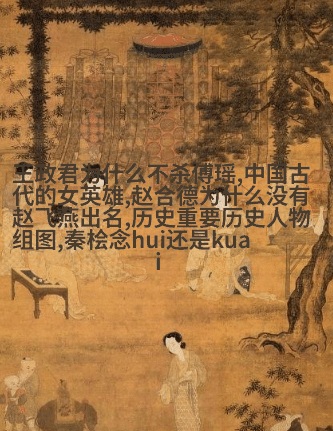 王政君为什么不杀傅瑶,中国古
代的女英雄,赵合德为什么没有
赵飞燕出名,历史重要历史人物
组图,秦桧念hui还是kua
i